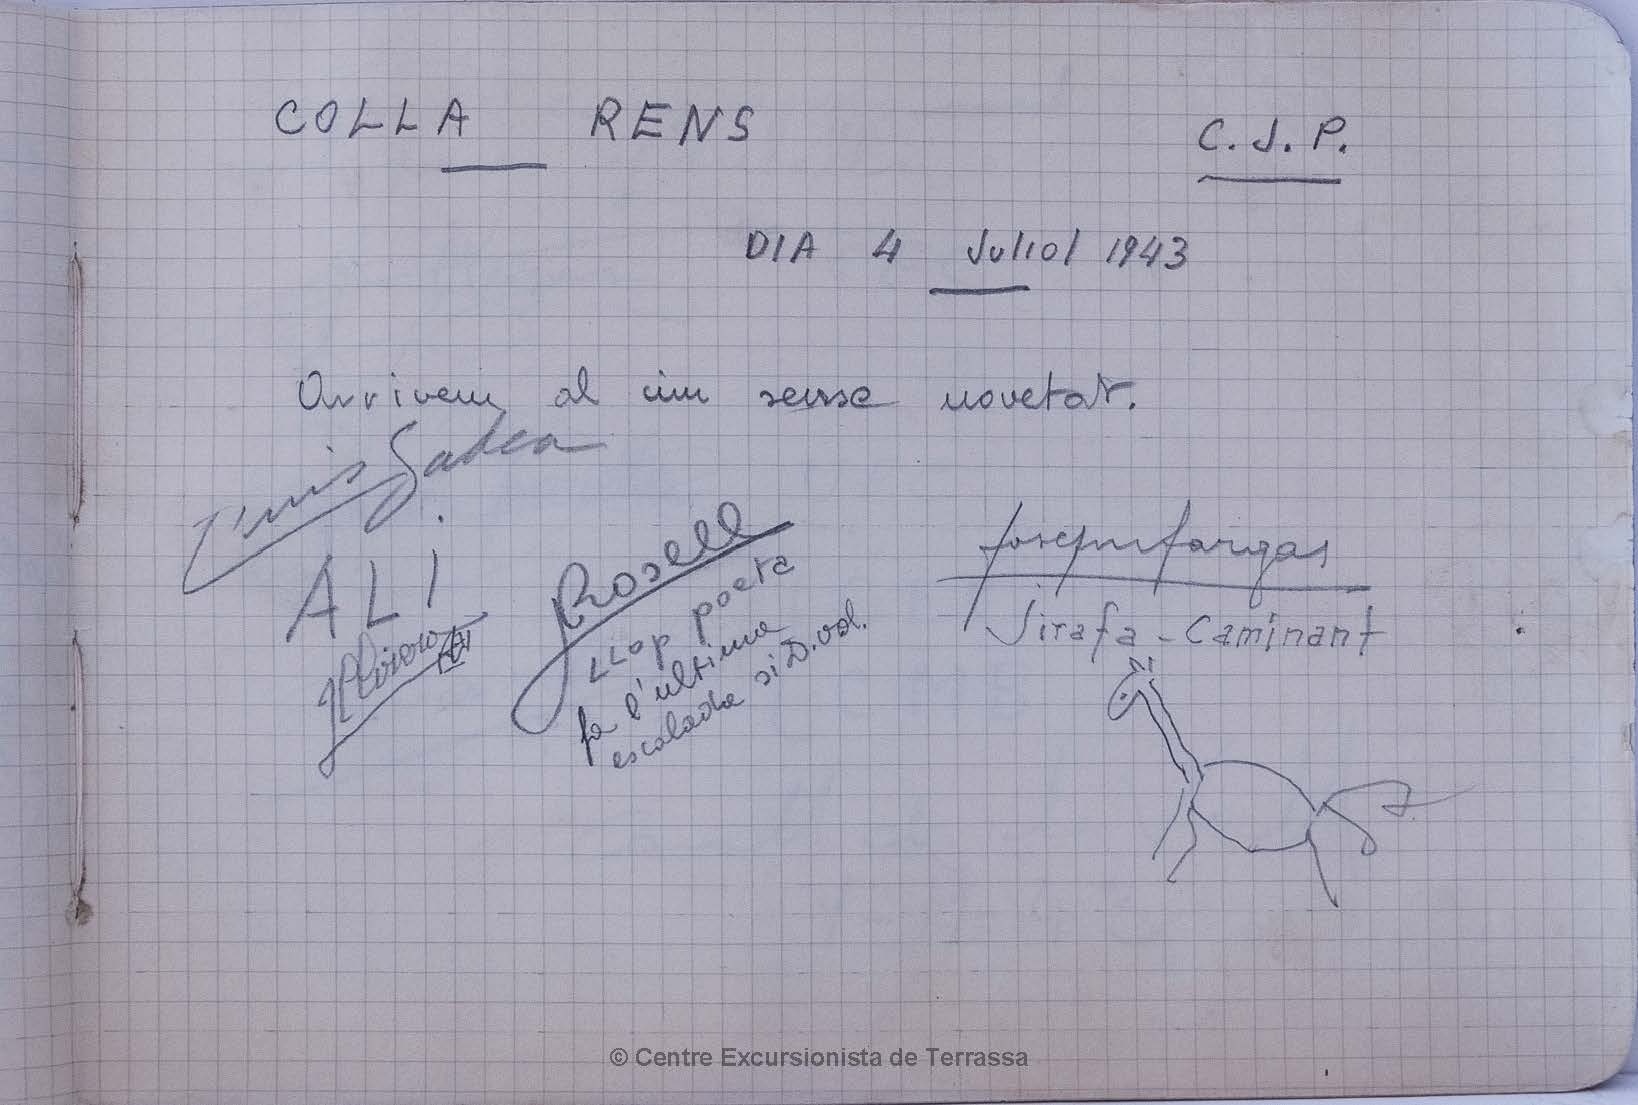 COLLA RENS
C.J.P.
DIA 4 Juliol 1943
Arrivem al cim sense novetat.
ALI
Rosell
LLop poeta
fa l'ultima
escalada si D. vol.
Josep Fargas
Jirafa - Caminant
© Centre Excursionista de Terrassa